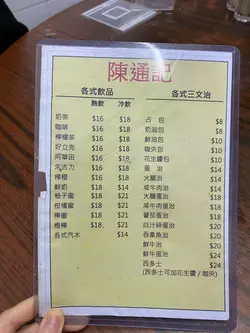 陳通記
各式飲品
熱飲 冷飲
奶茶 $16 $18
咖啡 $16 $18
檸檬茶 $16 $18
好立克 $16 $18
阿華田 $16 $18
朱古力 $16 $18
檸檬 $16 $18
鮮奶 $14 $18
柚子蜜 $18 $21
柑橘蜜 $18 $21
檸蜜 $18 $21
各式汽水 $14
各式三文治
占包 $8
奶油包 $8
鮮油包 $8
咖央包 $10
花生醬包 $10
蛋治 $14
火腿治 $14
咸牛肉治 $14
火腿蛋治 $18
咸牛肉蛋治 $18
番茄蛋治 $18
白汁磅蛋治 $20
吞拿魚治 $20
鮮牛治 $20
鮮牛蛋治 $24
西多士 $24
(西多士可加花生醬/咖央)